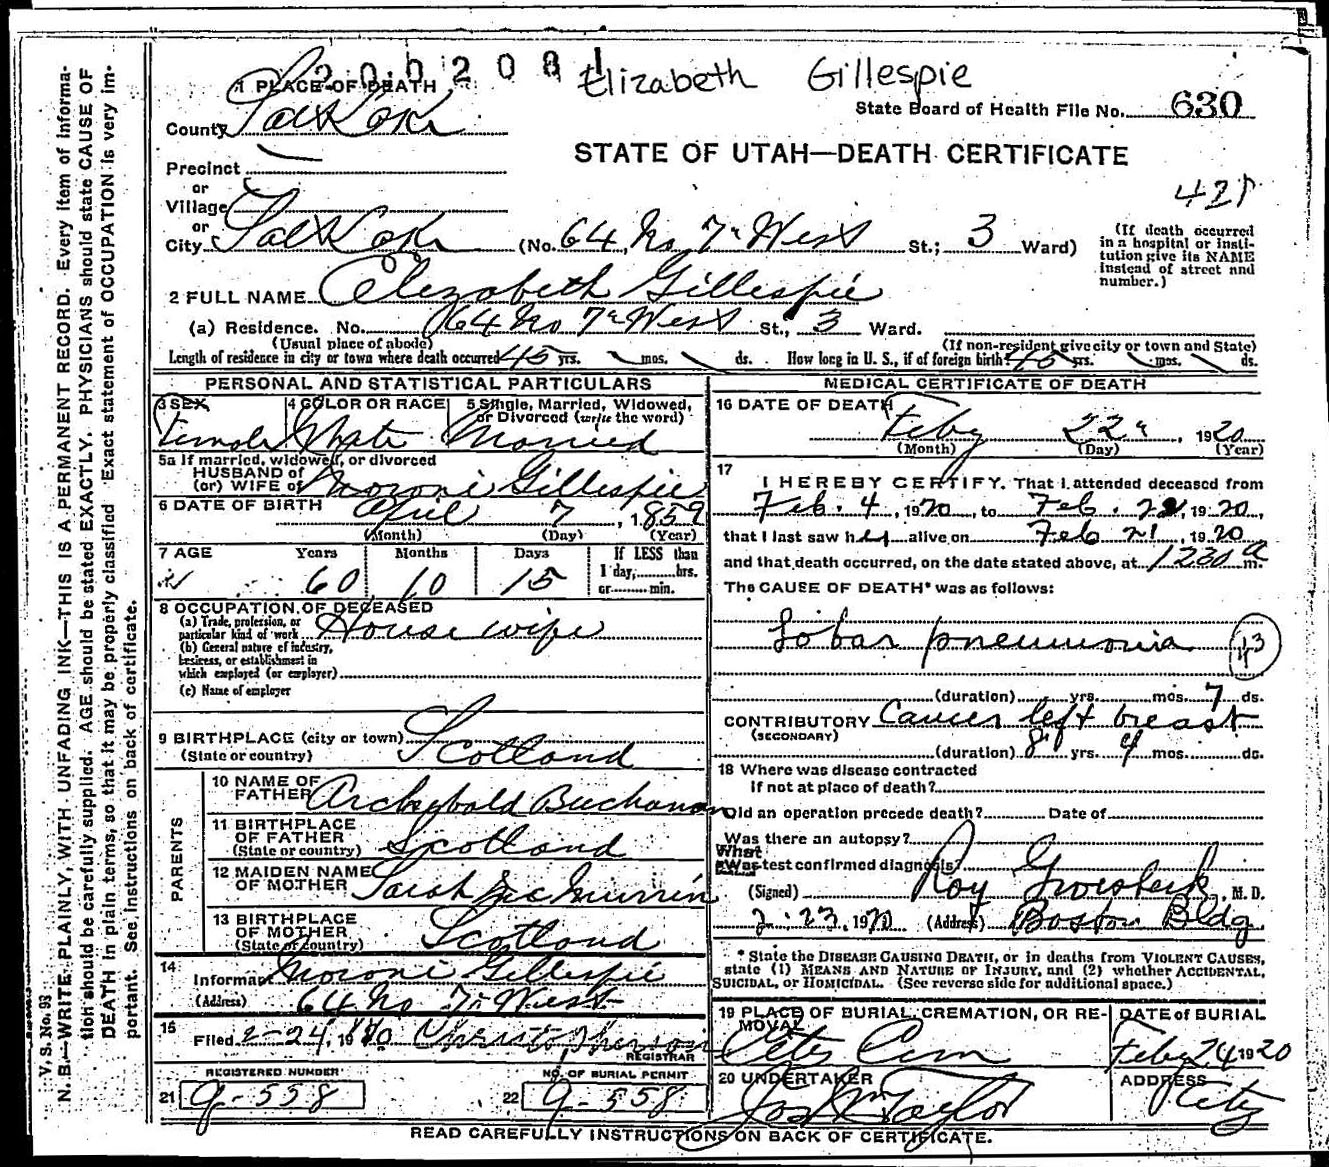 2 0 0 2 0 8 1
Elizabeth Gillespie
1 PLACE OF DEATH
State Board of Health File No. 630
County Salt Lake
STATE OF UTAH—DEATH CERTIFICATE
Precinct
or
Village
or
421
City Salt Lake (No. 64 No 7th West St.; 3 Ward)
(If death occurred in a hospital or institution give its NAME instead of street and number.)
2 FULL NAME Elizabeth Gillespie
(a) Residence. No. 64 No 7th West St., 3 Ward.
(Usual place of abode) (If non-resident give city or town and State)
Length of residence in city or town where death occurred 45 yrs. mos. ds. How long in U. S., if of foreign birth? 45 yrs. mos. ds.
PERSONAL AND STATISTICAL PARTICULARS
3 SEX Female
4 COLOR OR RACE White
5 Single, Married, Widowed, or Divorced (write the word) Married
5a If married, widowed, or divorced
HUSBAND of
(or) WIFE of Moroni Gillespie
6 DATE OF BIRTH April 7, 1859
(Month) (Day) (Year)
7 AGE Years 60 Months 10 Days 15
If LESS than 1 day, hrs. or min.
8 OCCUPATION OF DECEASED
(a) Trade, profession, or particular kind of work Housewife
(b) General nature of industry, business, or establishment in which employed (or employer)
(c) Name of employer
9 BIRTHPLACE (city or town)
(State or country) Scotland
PARENTS
10 NAME OF FATHER Archybald Buchanan
11 BIRTHPLACE OF FATHER (State or country) Scotland
12 MAIDEN NAME OF MOTHER Sarah McMurrin
13 BIRTHPLACE OF MOTHER (State or country) Scotland
14 Informant Moroni Gillespie
(Address) 64 No 7th West
15 Filed 2-24, 1920
REGISTRAR
REGISTERED NUMBER
21 9-558
NO. OF BURIAL PERMIT
22 9-558
MEDICAL CERTIFICATE OF DEATH
16 DATE OF DEATH Feby 22", 1920
(Month) (Day) (Year)
17 I HEREBY CERTIFY, That I attended deceased from
Feb. 4, 1920, to Feb. 22, 1920,
that I last saw her alive on Feb 21, 1920
and that death occurred, on the date stated above, at 1230 a m.
The CAUSE OF DEATH* was as follows:
Lobar pneumonia
(duration) yrs. mos. 7 ds.
CONTRIBUTORY Cancer left breast
(SECONDARY)
(duration) 8 yrs. 4 mos. ds.
18 Where was disease contracted
If not at place of death?
Did an operation precede death? Date of
Was there an autopsy?
What test confirmed diagnosis?
(Signed) Roy Groesbeck, M. D.
2-23, 1920 (Address) Boston Bldg.
* State the DISEASE CAUSING DEATH, or in deaths from VIOLENT CAUSES, state (1) MEANS AND NATURE OF INJURY, and (2) whether ACCIDENTAL, SUICIDAL, or HOMICIDAL. (See reverse side for additional space.)
19 PLACE OF BURIAL, CREMATION, OR REMOVAL City Cem
DATE of BURIAL Feby 24 1920
20 UNDERTAKER Jos Wm Taylor
ADDRESS City
READ CAREFULLY INSTRUCTIONS ON BACK OF CERTIFICATE.
V. S. No. 98
N. B.—WRITE PLAINLY, WITH UNFADING INK—THIS IS A PERMANENT RECORD. Every item of information should be carefully supplied. AGE should be stated EXACTLY. PHYSICIANS should state CAUSE OF DEATH in plain terms, so that it may be properly classified. Exact statement of OCCUPATION is very important. See instructions on back of certificate.